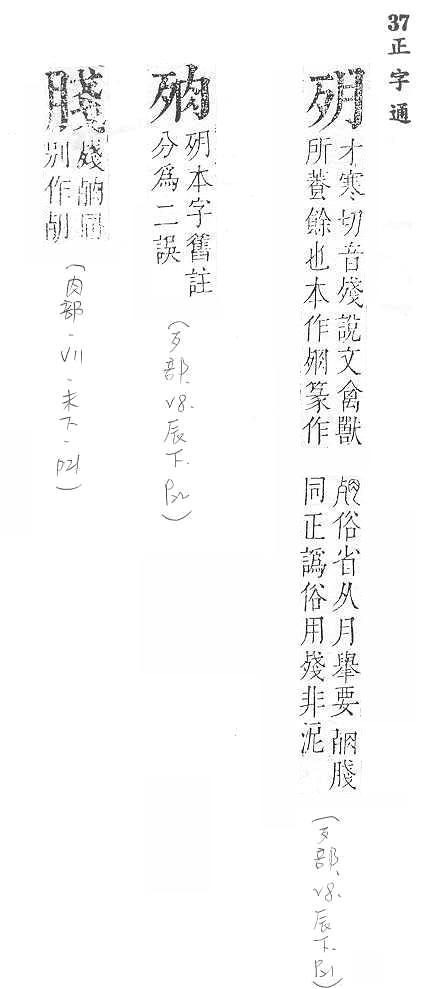 37 正字通
才寒切音殘說文禽獸
所蕢餘也本作篆作
俗省从月舉要
同正譌俗用殘非泥
(歹部.V8.辰下.P21)
本字舊註
分爲二誤
(歹部.V8.辰下.P22)
同
別作
(肉部-VII-未下-P21)